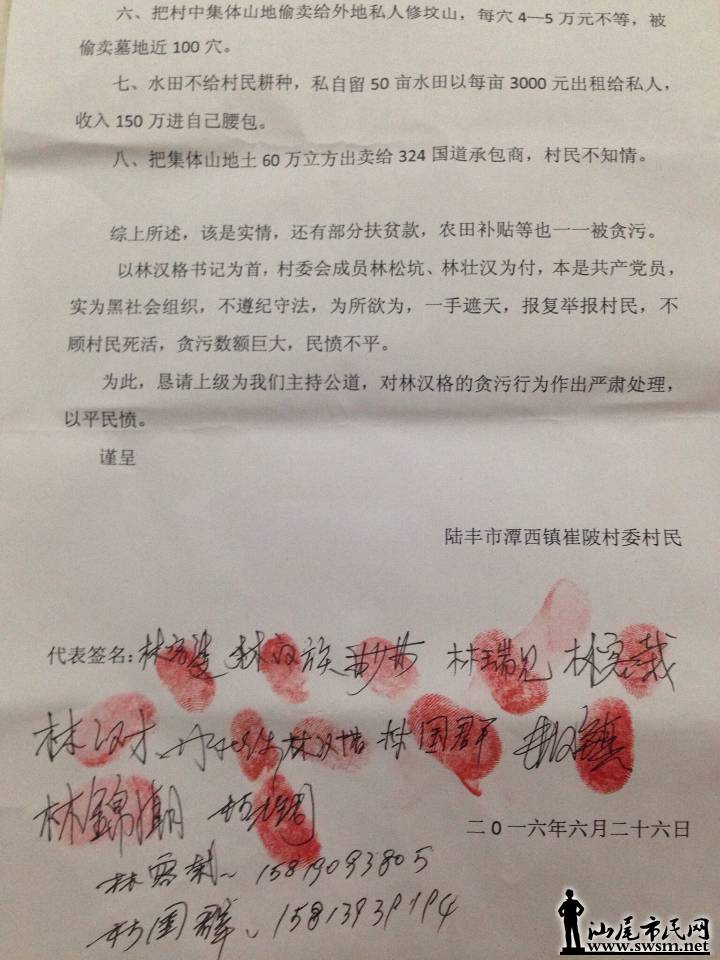 六、把村中集体山地偷卖给外地私人修坟山，每穴 4—5 万元不等，被
偷卖墓地近 100 穴。
七、水田不给村民耕种，私自留 50 亩水田以每亩 3000 元出租给私人，
收入 150 万进自己腰包。
八、把集体山地土 60 万立方出卖给 324 国道承包商，村民不知情。
综上所述，该是实情，还有部分扶贫款，农田补贴等也一一被贪污。
以林汉格书记为首，村委会成员林松坑、林壮汉为付，本是共产党员，
实为黑社会组织，不遵纪守法，为所欲为，一手遮天，报复举报村民，不
顾村民死活，贪污数额巨大，民愤不平。
为此，恳请上级为我们主持公道，对林汉格的贪污行为作出严肃处理，
以平民愤。
谨呈
陆丰市潭西镇崔陂村委村民
代表签名：
林国群
林錦潮
二〇一六年六月二十六日
15819093805
林国群、15813939194
汕尾市民网
www.swsm.net